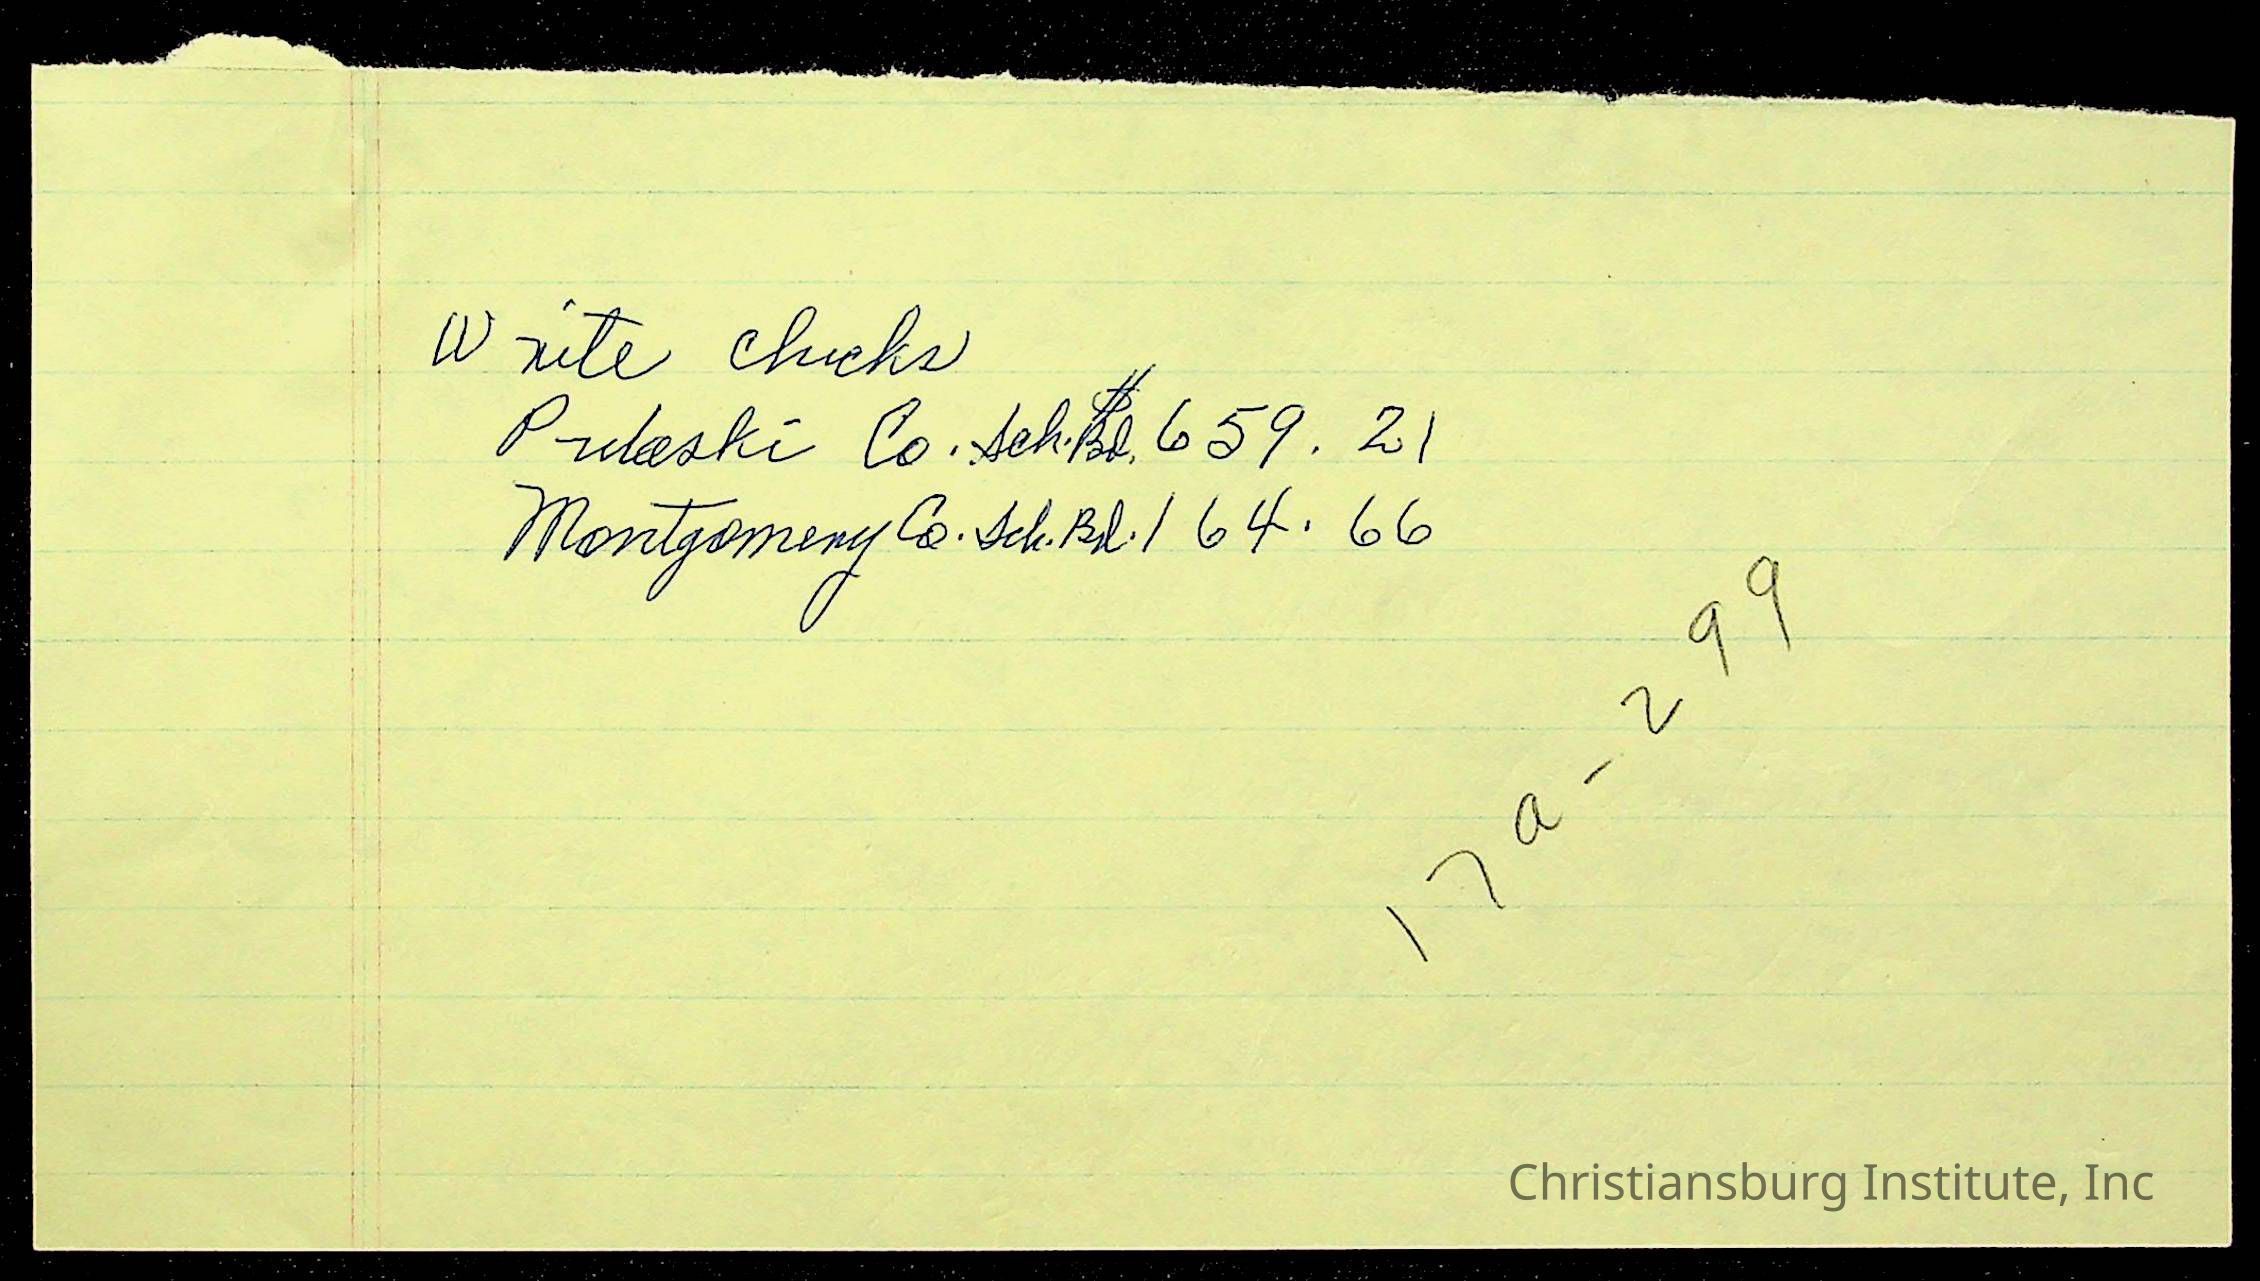 Write checks
Pulaski Co. Sch. Bd. $659.21
Montgomery Co. Sch. Bd. 164.66
17a-299
Christiansburg Institute, Inc